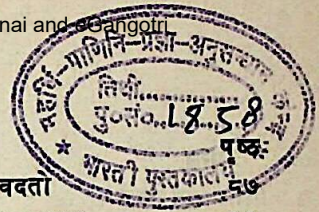 nai and eGangotri
महर्षि-पाणिनि-प्रज्ञा-अनुसन्धान
तिथी..........
पु०सं०..1858
पृष्ठः
भारती पुस्तकालय
वदतो
८७